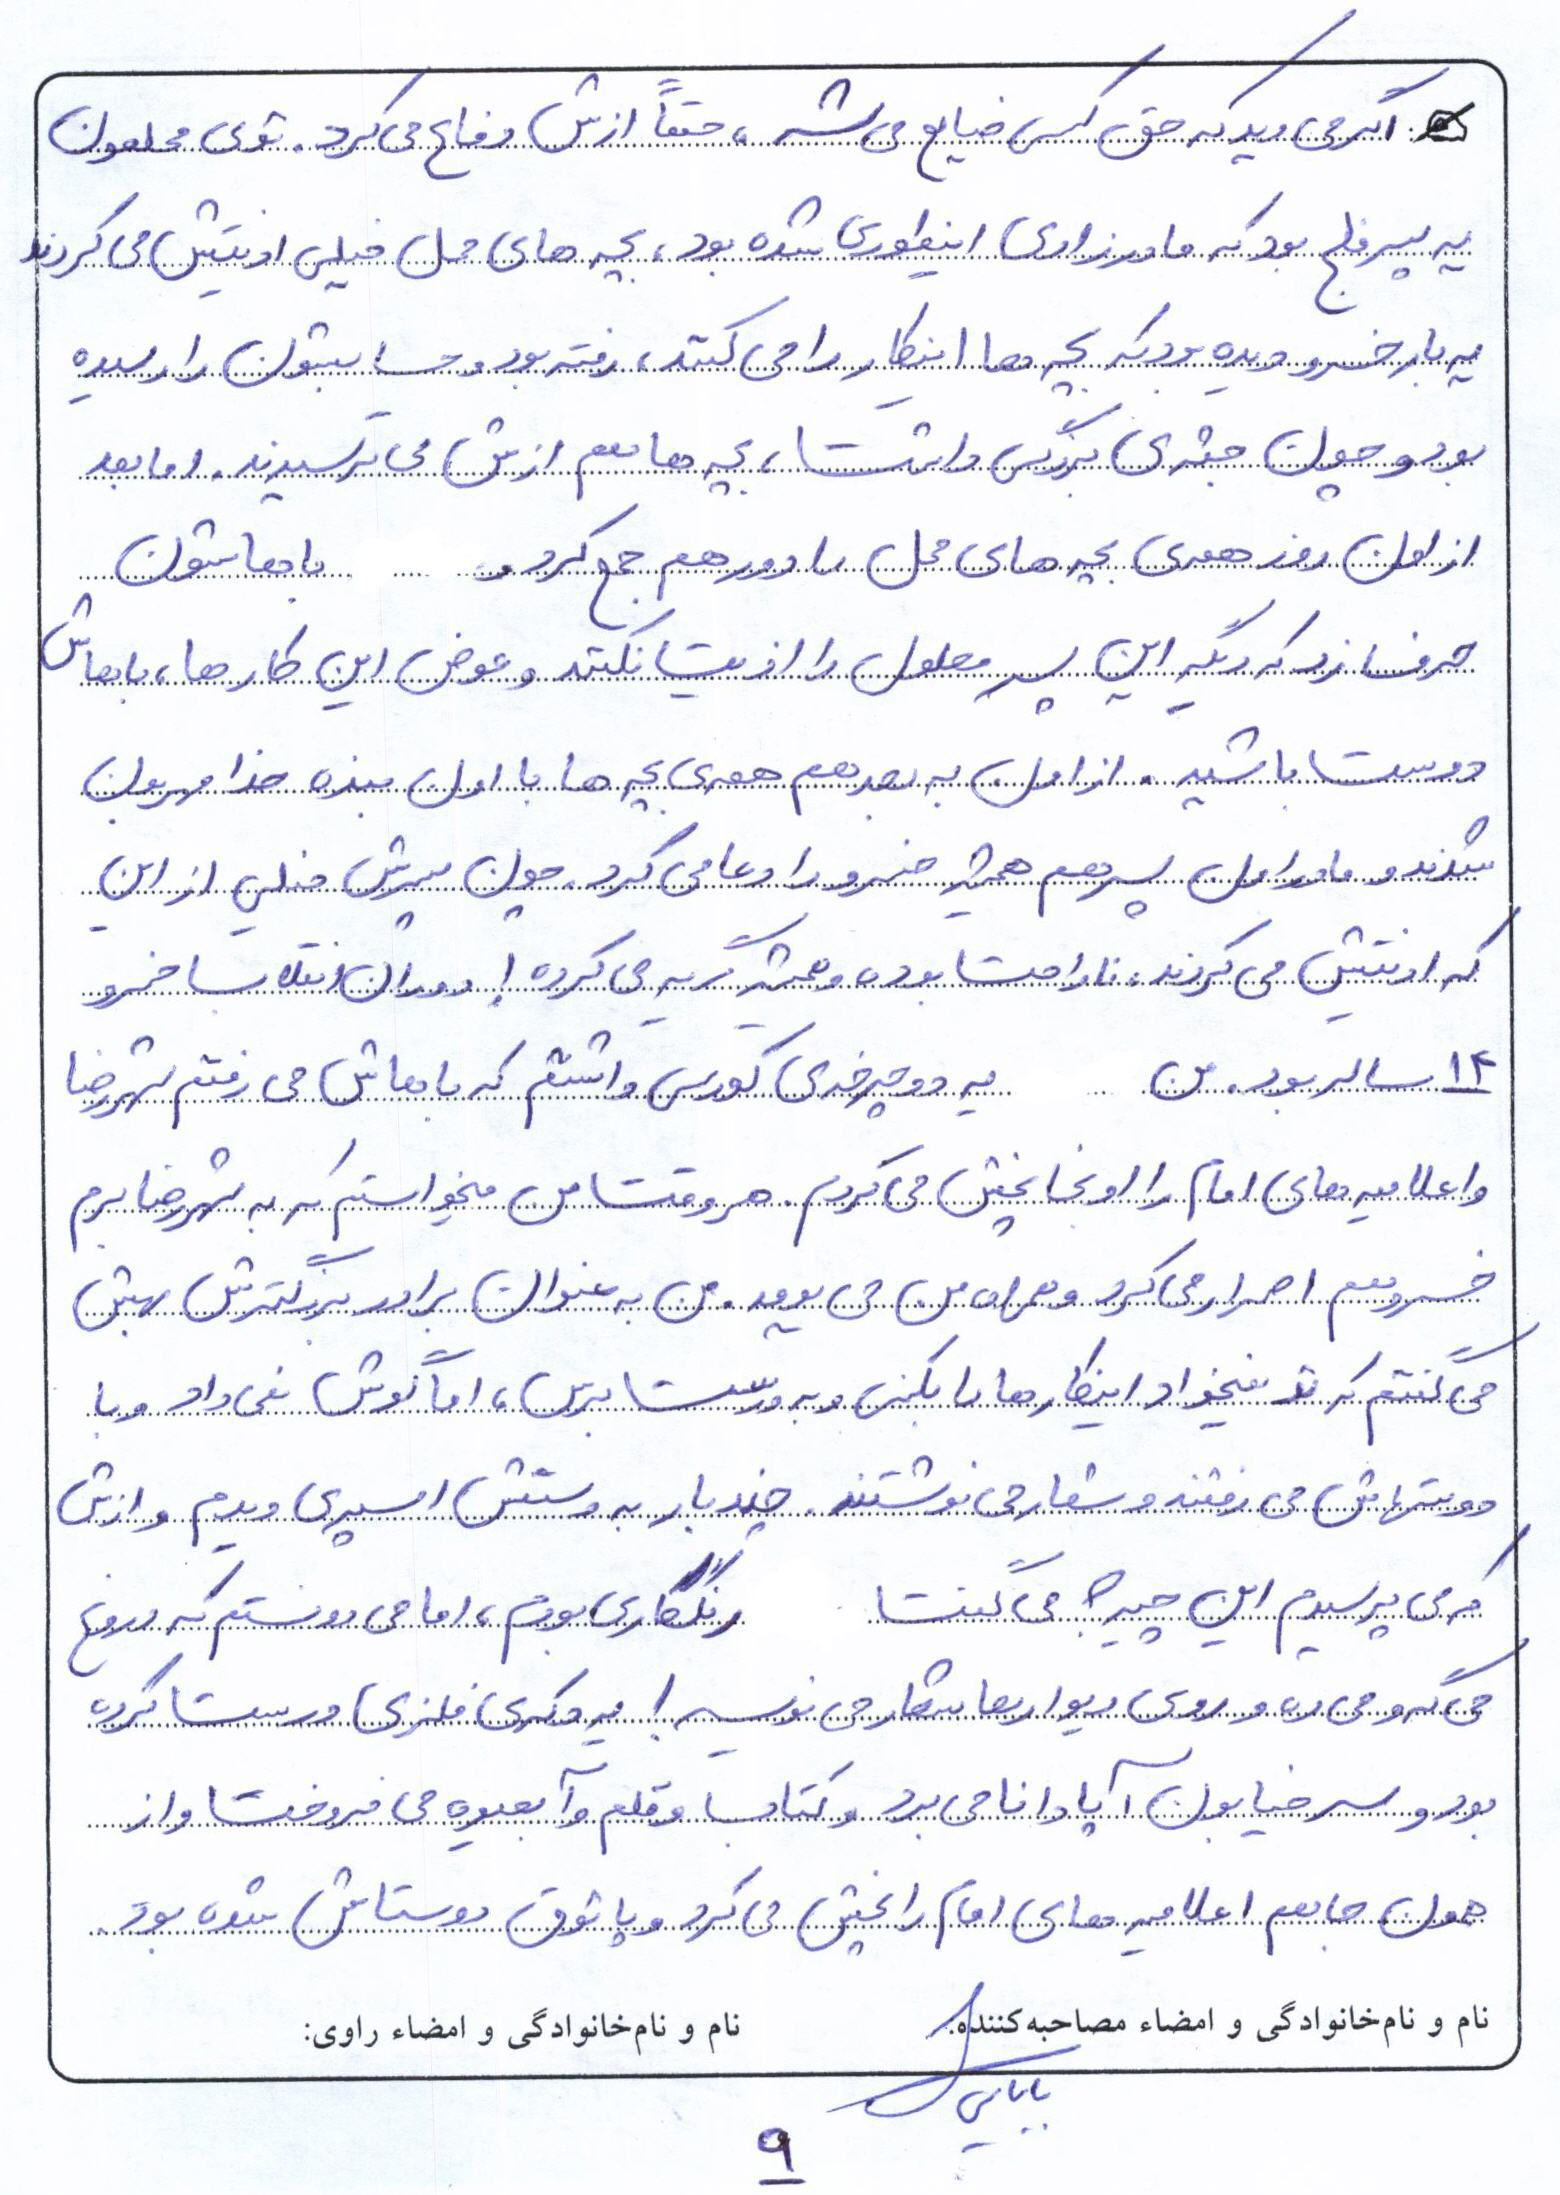 اگر می دید که حق کسی ضایع می شه، حتماً ازش دفاع می کرد. توی محلمون
یه پسر فلج بود که مادرزادی اینطوری شده بود، بچه های محل خیلی اذیتش می کردند
یه بار خسرو دیده بود که بچه ها اینکار را می کنند، رفته بود و حسابشون را رسیده
بود و چون جثه ی بزرگی داشت، بچه ها هم ازش می ترسیدند. اما بعد
از اون روز همه ی بچه های محل را دور هم جمع کرد و باهاشون
حرف زد که دیگه این پسر معلول را اذیت نکنند و عوض این کارها، باهاش
دوست باشید. از اون به بعد هم همه ی بچه ها با اون بنده خدا مهربون
شدند و مادر اون پسر هم همیشه خسرو را دعا می کرد. چون پسرش خیلی از این
که اذیتش می کردند، ناراحت بوده و همیشه گریه می کرده! دوران انقلاب خسرو
۱۴ ساله بود. من یه دوچرخه ی کورسی داشتم که باهاش می رفتم شهرضا
و اعلامیه های امام را اونجا پخش می کردم. هر وقت من میخواستم که به شهرضا برم
خسرو هم اصرار می کرد و همراه من می یومد. من به عنوان برادر بزرگترش بهش
می گفتم که تو نمیخواد اینکارها را بکنی و به درست برس، اما گوش نمی داد و با
دوستهاش می رفتند و شعار می نوشتند. چند بار به دستش اسپری دیدم و ازش
که می پرسیدم این چیه؟ می گفت رنگکاری بودم، اما می دونستم که دروغ
می گه و می ره و روی دیوارها شعار می نویسه! یه دکه ی فلزی درست کرده
بود و سر خیابون آپادانا می برد و کتاب و قلم و آبمیوه می فروخت و از
همون جا هم اعلامیه های امام را پخش می کرد و پاتوق دوستاش شده بود.
نام و نام خانوادگی و امضاء مصاحبه کننده: نام و نام خانوادگی و امضاء راوی:
بابایی
۹